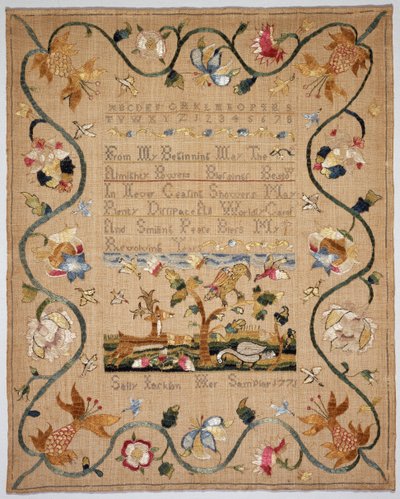 ABCDEFGHKLMNOPQRS
TVWXYZ12345678
From My Beginning May The
Almighty Powers Blessings Bestow
In Never Ceasing Showers May
Plenty Dissipate All Worldly Cares
And Smiling Peace Bless My
Revolving Years
Sally Jackson Her Sampler 1771